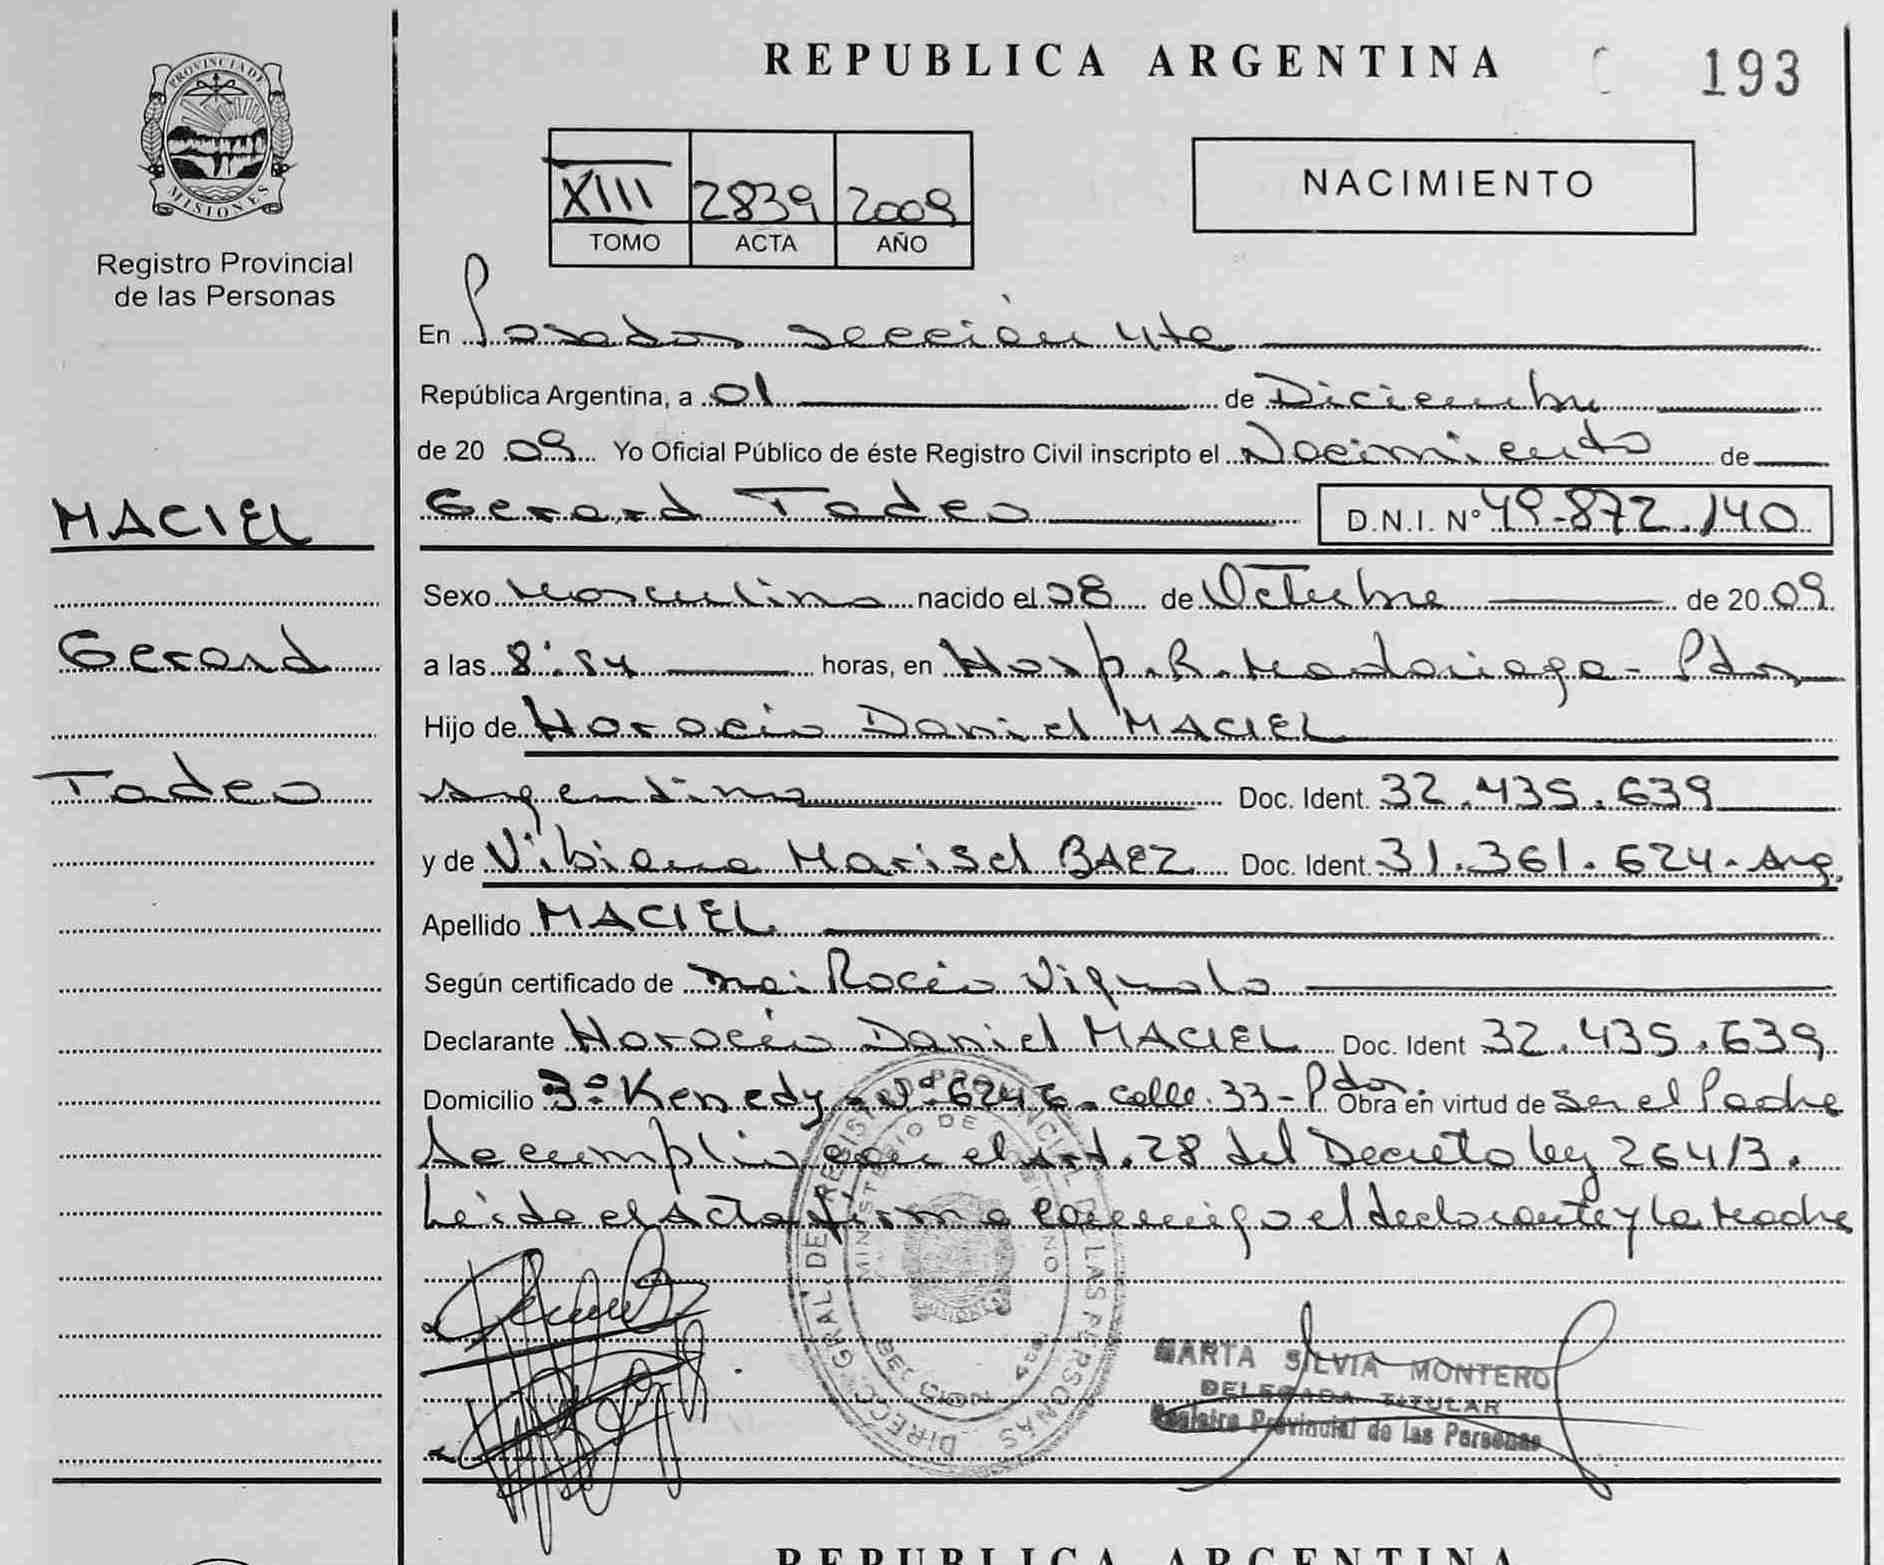 PROVINCIA DE
MISIONES
Registro Provincial
de las Personas
REPUBLICA ARGENTINA 193
XIII 2839 2009
TOMO ACTA AÑO
NACIMIENTO
En Posadas sección 4ta
República Argentina, a 01 de Diciembre
de 2009 Yo Oficial Público de éste Registro Civil inscripto el Nacimiento de
MACIEL Gerard Tadeo D.N.I. Nº 49.872.140
Sexo Masculino nacido el 28 de Octubre de 2009
Gerard a las 8:54 horas, en Hosp. R. Madariaga - Pdas
Hijo de Horacio Daniel MACIEL
Tadeo Argentino Doc. Ident. 32.435.639
y de Vibiana Marisel BAEZ Doc. Ident. 31.361.624 - Arg.
Apellido MACIEL
Según certificado de Rocío Vignolo
Declarante Horacio Daniel MACIEL Doc. Ident 32.435.639
Domicilio Bº Kenedy - Nº 6246 - Calle 33 - Pdas. Obra en virtud de ser el Padre
Se cumplió con el Art. 28 del Decreto ley 26413.
Leída el Acta firma conmigo el declarante y la Madre
DIRECC. GRAL. DE REGISTRO PROVINCIAL DE LAS PERSONAS
MINISTERIO DE GOBIERNO
MISIONES
MARTA SILVIA MONTERO
DELEGADA TITULAR
Registro Provincial de las Personas
REPUBLICA ARGENTINA